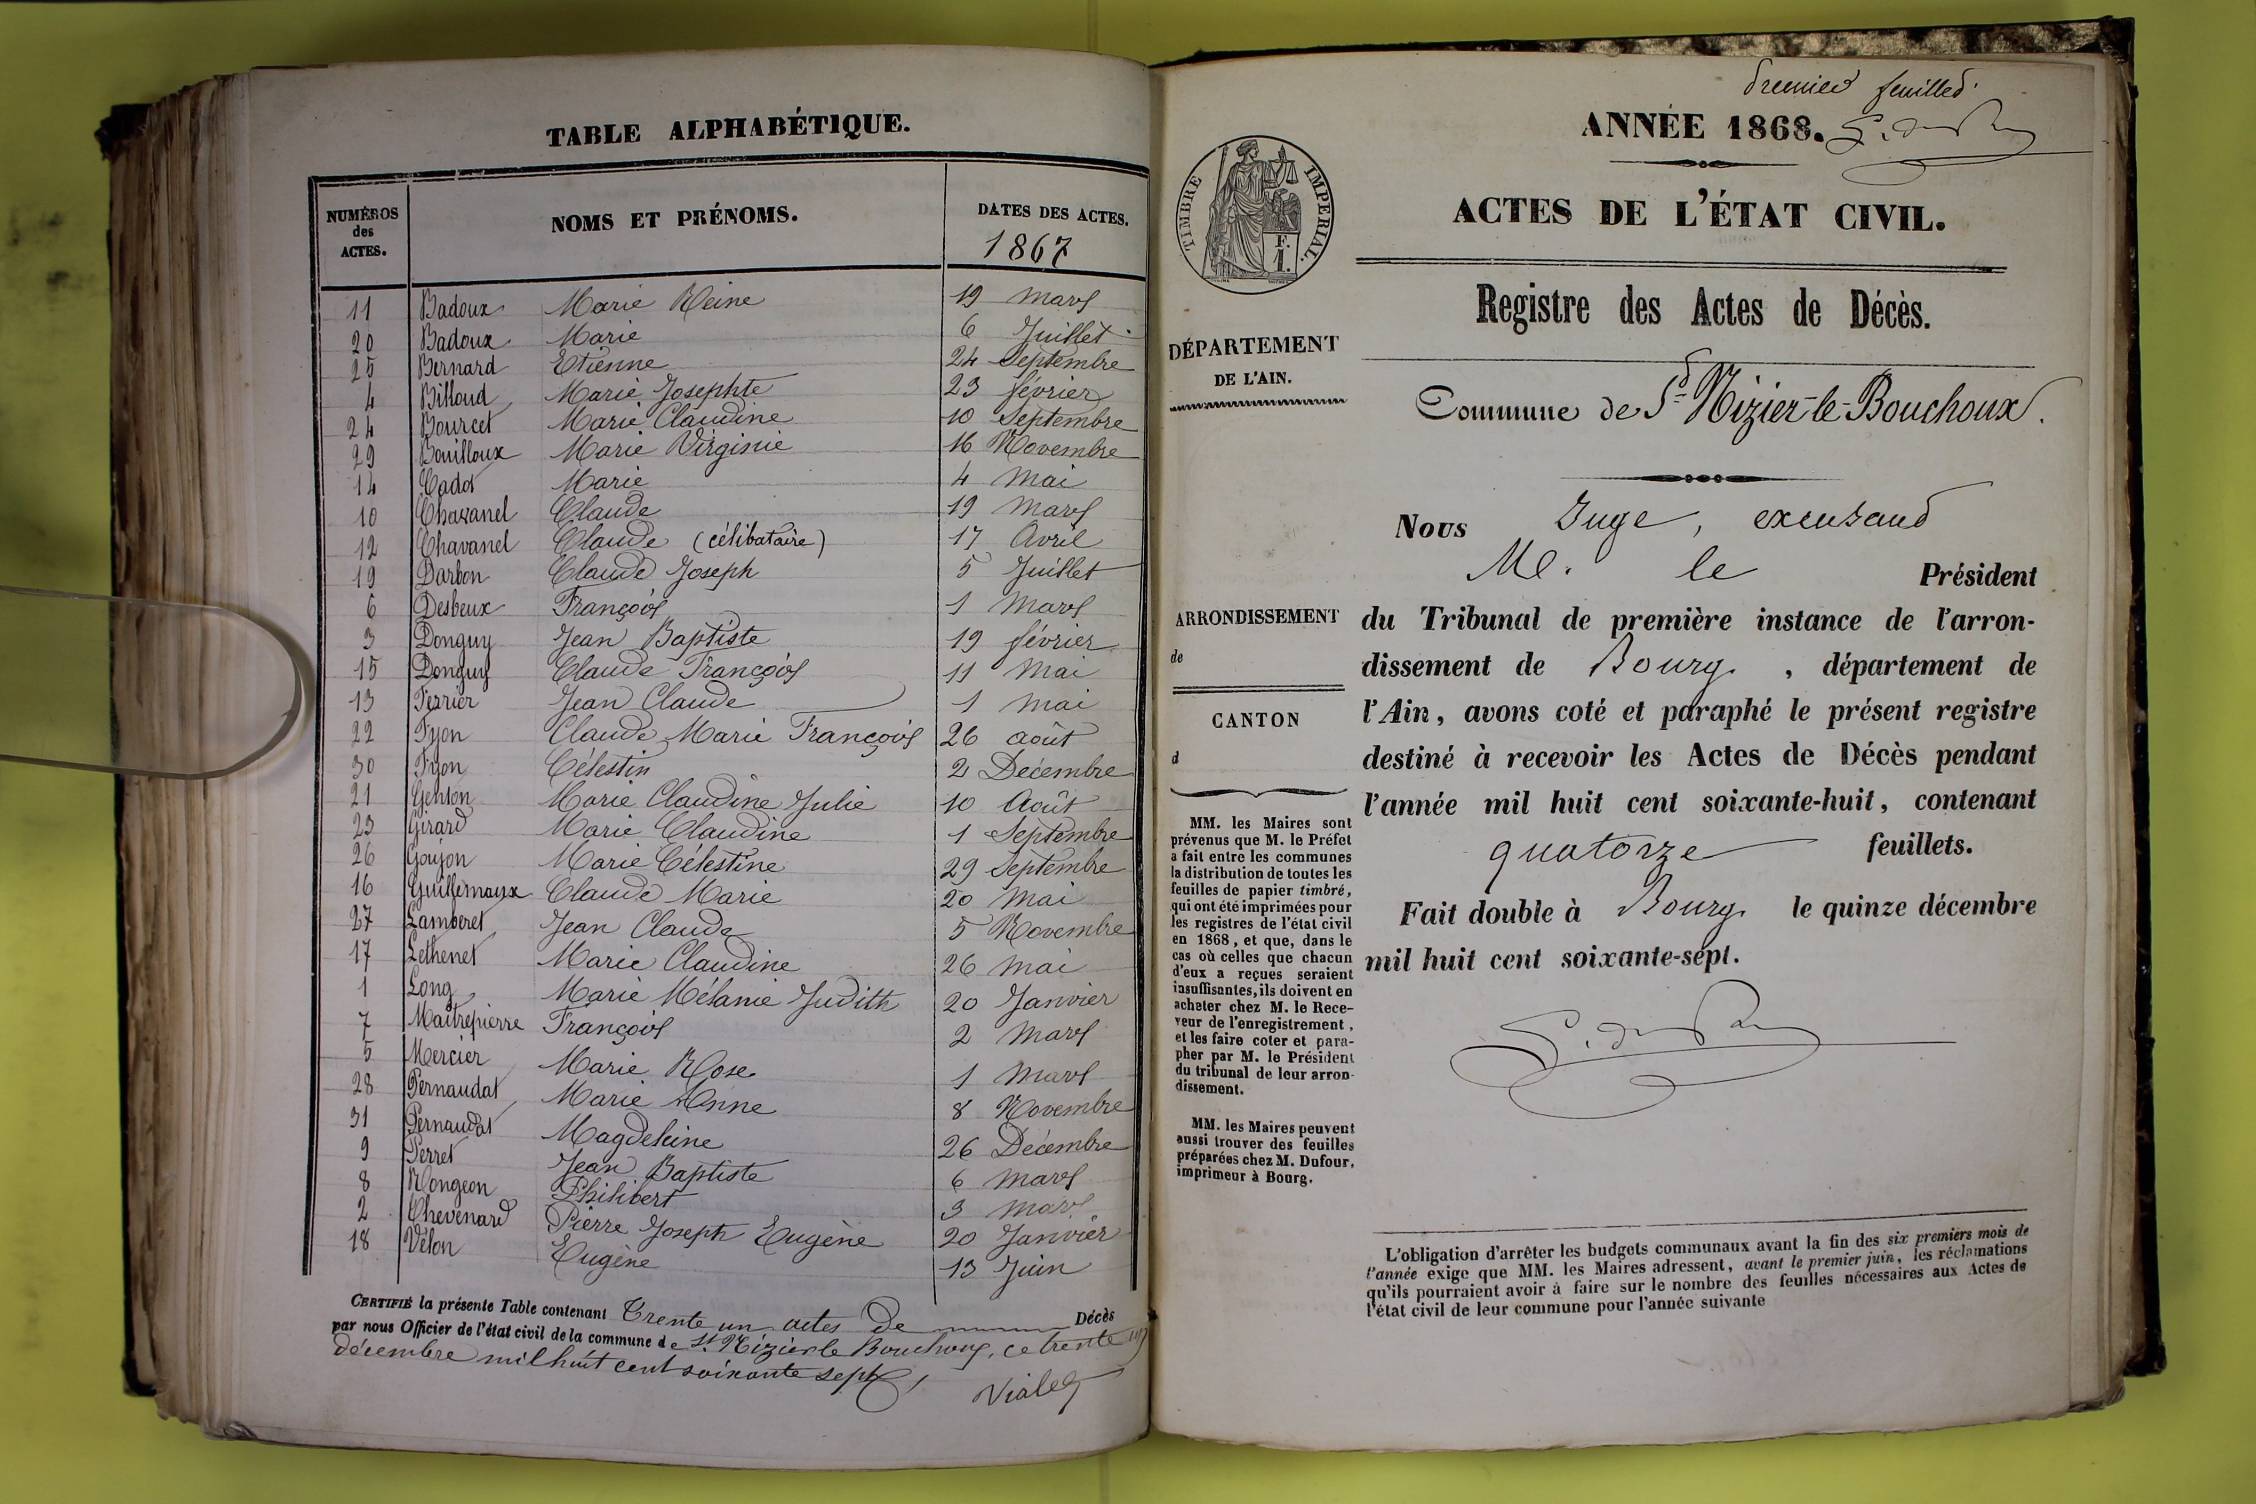 TABLE ALPHABÉTIQUE.
NUMÉROS des ACTES. NOMS ET PRÉNOMS. DATES DES ACTES. 1867
11 Badoux Marie Reine 19 mars
20 Badoux Marie 6 Juillet
25 Bernard Etienne 24 Septembre
4 Billoud Marie Josephte 23 février
24 Bourcet Marie Claudine 10 Septembre
29 Bouilloux Marie Virginie 16 Novembre
14 Cadot Marie 4 mai
10 Chavanel Claude 19 mars
12 Chavanel Claude (célibataire) 17 Avril
19 Darbon Claude Joseph 5 Juillet
6 Desbeux François 1 mars
3 Donguy Jean Baptiste 19 février
15 Donguy Claude François 11 mai
13 Ferrier Jean Claude 1 mai
22 Fyon Claude Marie François 26 août
30 Fyon Célestin 2 Décembre
21 Genton Marie Claudine Julie 10 Août
23 Girard Marie Claudine 1 Septembre
26 Goujon Marie Célestine 29 Septembre
16 Guillemaux Claude Marie 20 mai
27 Lamberet Jean Claude 5 Novembre
17 Lethenet Marie Claudine 26 mai
1 Long Marie Mélanie Judith 20 Janvier
7 Maitrepierre François 2 mars
5 Mercier Marie Rose 1 mars
28 Pernaudat Marie Anne 8 Novembre
31 Pernaudat Magdeleine 26 Décembre
9 Perret Jean Baptiste 6 mars
8 Rongeon Philibert 3 mars
2 Chevenard Pierre Joseph Eugène 20 Janvier
18 Vélon Eugène 13 Juin
CERTIFIÉ la présente Table contenant Trente un actes de Décès
par nous Officier de l'état civil de la commune de St Nizier le Bouchoux, ce trente un
décembre mil huit cent soixante sept
Vialet
Premier feuillet
ANNÉE 1868.
ACTES DE L'ÉTAT CIVIL.
TIMBRE IMPERIAL.
F.
1.
Registre des Actes de Décès.
DÉPARTEMENT
DE L'AIN.
Commune de St Nizier-le-Bouchoux.
Nous Juge, excusant
M. le Président
du Tribunal de première instance de l'arron-
dissement de Bourg, département de
l'Ain, avons coté et paraphé le présent registre
destiné à recevoir les Actes de Décès pendant
l'année mil huit cent soixante-huit, contenant
quatorze feuillets.
Fait double à Bourg le quinze décembre
mil huit cent soixante-sept.
ARRONDISSEMENT
de
CANTON
d
MM. les Maires sont
prévenus que M. le Préfet
a fait entre les communes
la distribution de toutes les
feuilles de papier timbré,
qui ont été imprimées pour
les registres de l'état civil
en 1868, et que, dans le
cas où celles que chacun
d'eux a reçues seraient
insuffisantes, ils doivent en
acheter chez M. le Rece-
veur de l'enregistrement,
et les faire coter et para-
pher par M. le Président
du tribunal de leur arron-
dissement.
MM. les Maires peuvent
aussi trouver des feuilles
préparées chez M. Dufour,
imprimeur à Bourg.
L'obligation d'arrêter les budgets communaux avant la fin des six premiers mois de
l'année exige que MM. les Maires adressent, avant le premier juin, les réclamations
qu'ils pourraient avoir à faire sur le nombre des feuilles nécessaires aux Actes de
l'état civil de leur commune pour l'année suivante